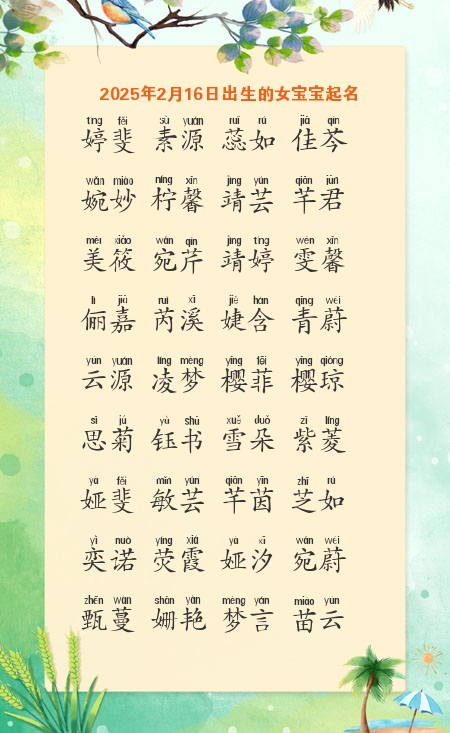 2025年2月16日出生的女宝宝起名
tíng fěi sù yuán ruǐ rú jiā qín
婷斐 素源 蕊如 佳芩
wǎn miào níng xīn jìng yún qiān jūn
婉妙 柠馨 靖芸 芊君
měi xiǎo wǎn qín jìng tíng wén xīn
美筱 宛芹 靖婷 雯馨
lì jiā ruì xī jié hán qīng wèi
俪嘉 芮溪 婕含 青蔚
yún yuán líng mèng yīng fēi yīng qióng
云源 凌梦 樱菲 樱琼
sī jú yù shū xuě duǒ zǐ líng
思菊 钰书 雪朵 紫菱
yà fěi mǐn yún qiān yīn zhī rú
娅斐 敏芸 芊茵 芝如
yì nuò yíng xiá yà xī wǎn wèi
奕诺 荧霞 娅汐 宛蔚
zhēn wàn shān yàn mèng yán miáo yún
甄蔓 姗艳 梦言 苗云